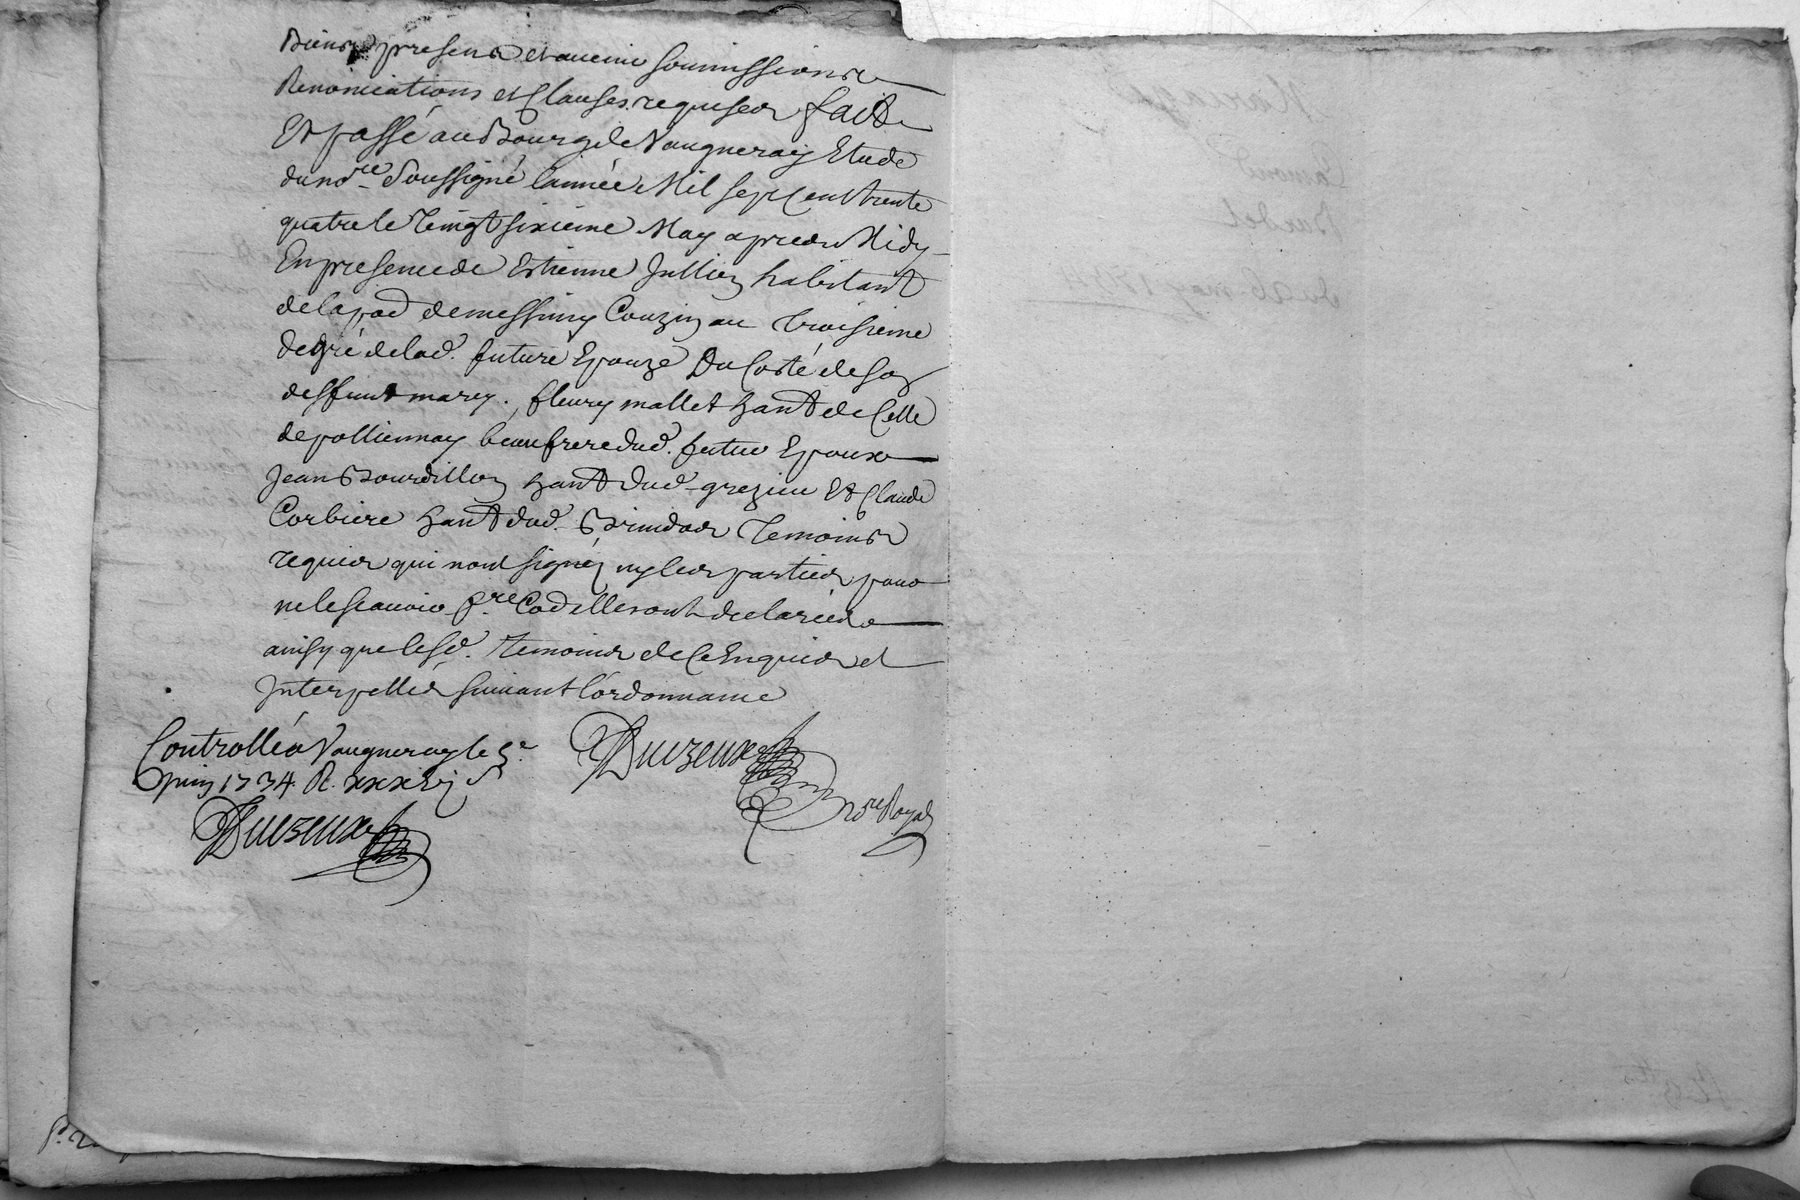 Biens presens et avenir soumissions
Renonciations et Clauses requises fait
Et passé au Bourg de Vaugneray Etude
du no.re Soussigné lannée Mil sept cent trente
quatre le Vingt sixieme May apres Midy
En presence de Estienne Jullien habitant
de la par. de messimy Couzin au troisieme
degré de lad. future Epouze Du Costé de son
deffunt mary. fleury mallet hant de Celle
de pollionnay beaufrere dud. futur Epoux
Jean Bourdillon hant dud. grezieu Et Claude
Corbiere hant dud. Brindas Temoins
requis qui nont signé ny les parties pour
ne le scavoir Co. Elles ont declarées
ainsy que lesd. Temoins de Ce Enquis et
Interpellés suivant l'ordonnance
Controllé a Vaugneray le 5.e
Juin 1734. R. xxxvj s
Duizeux
no.re Royal
Mariage
du 26 may 1734